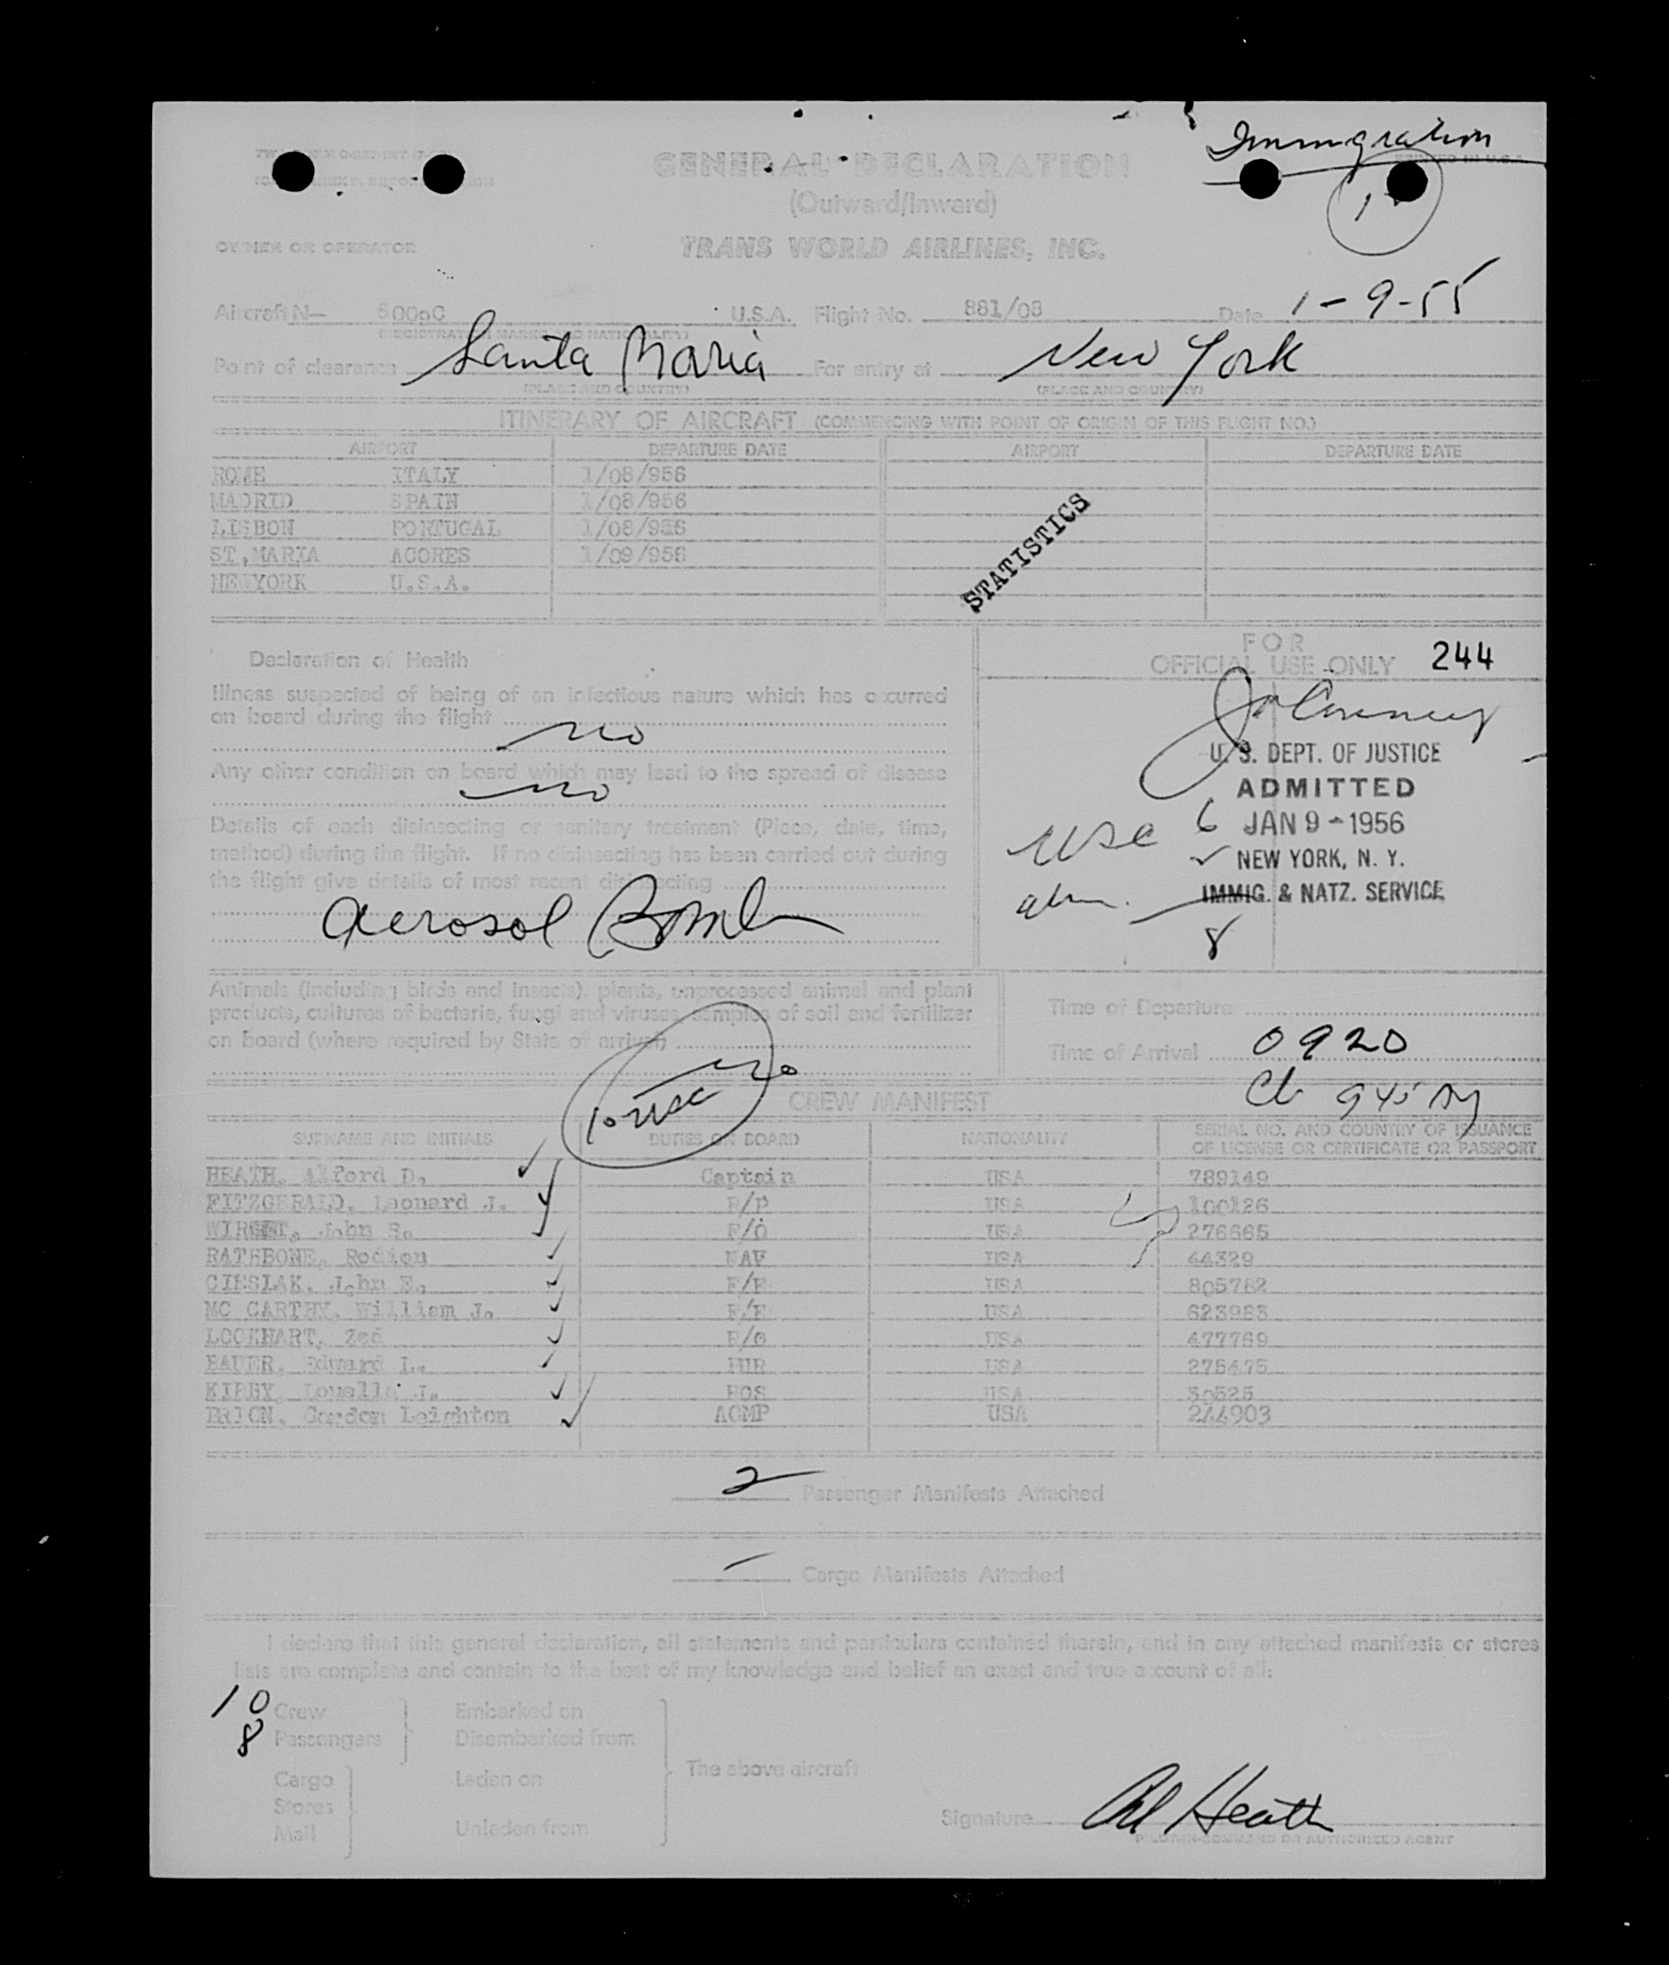 Immigration
GENERAL DECLARATION
(Outward/Inward)
1
OWNER OR OPERATOR TRANS WORLD AIRLINES, INC.
Aircraft N— U.S.A. Flight No. 881/08 Date 1-9-55
(REGISTRATION MARKS AND NATIONALITY)
Point of clearance Santa Maria For entry at New York
(PLACE AND COUNTRY) (PLACE AND COUNTRY)
ITINERARY OF AIRCRAFT (COMMENCING WITH POINT OF ORIGIN OF THIS FLIGHT NO.)
AIRPORT DEPARTURE DATE AIRPORT DEPARTURE DATE
ROME ITALY 1/08/956
MADRID SPAIN 1/08/956
LISBON PORTUGAL 1/08/956
ST.MARIA ACORES 1/09/956
NEWYORK U.S.A.
STATISTICS
FOR
OFFICIAL USE ONLY 244
Declaration of Health
Illness suspected of being of an infectious nature which has occurred
on board during the flight
no
Any other condition on board which may lead to the spread of disease
no
Details of each disinsecting or sanitary treatment (Place, date, time,
method) during the flight. If no disinsecting has been carried out during
the flight give details of most recent disinsecting
Aerosol Bomb
U. S. DEPT. OF JUSTICE
ADMITTED
JAN 9 - 1956
NEW YORK, N. Y.
IMMIG. & NATZ. SERVICE
usc 6
8
Animals (including birds and insects), plants, unprocessed animal and plant
products, cultures of bacteria, fungi and viruses, samples of soil and fertilizer
on board (where required by State of arrival)
no
10 usc
Time of Departure
Time of Arrival 0920
CREW MANIFEST
SURNAME AND INITIALS DUTIES ON BOARD NATIONALITY SERIAL NO. AND COUNTRY OF ISSUANCE
OF LICENSE OR CERTIFICATE OR PASSPORT
HEATH, Alford D. Captain USA 789149
FITZGERALD, Leonard J. USA 100126
John S. F/O USA 276665
RATHBONE, NAV USA 44329
CIESLAK, John E. F/E USA
MC CARTHY, William J. F/E USA 623983
LOCKHART, USA 477769
BAUER, Edward L. PUR USA 275475
KIRBY, Louella J. HOS USA 30525
BRION, Gordon Leighton ACMP USA 244903
2 Passenger Manifests Attached
— Cargo Manifests Attached
I declare that this general declaration, all statements and particulars contained therein, and in any attached manifests or stores
lists are complete and contain to the best of my knowledge and belief an exact and true account of all:
10 Crew Embarked on
8 Passengers Disembarked from
The above aircraft
Cargo Laden on
Stores
Mail Unladen from
Signature Al Heath
PILOT-IN-COMMAND OR AUTHORIZED AGENT